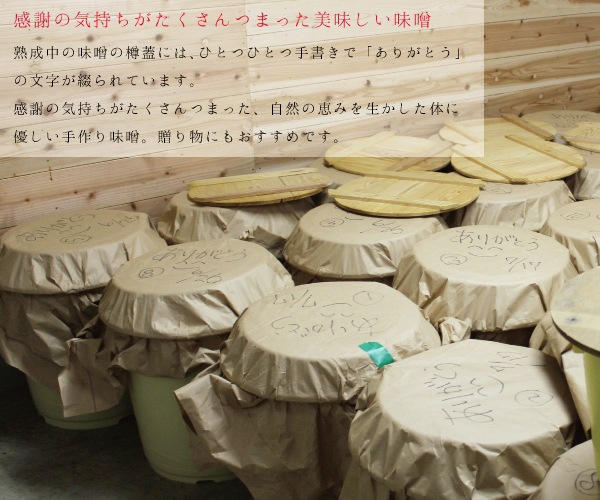 感謝の気持ちがたくさんつまった美味しい味噌
熟成中の味噌の樽蓋には、ひとつひとつ手書きで「ありがとう」
の文字が綴られています。
感謝の気持ちがたくさんつまった、自然の恵みを生かした体に
優しい手作り味噌。贈り物にもおすすめです。
ありがとう
ありがとう
ありがとう
①
ありがとう
②